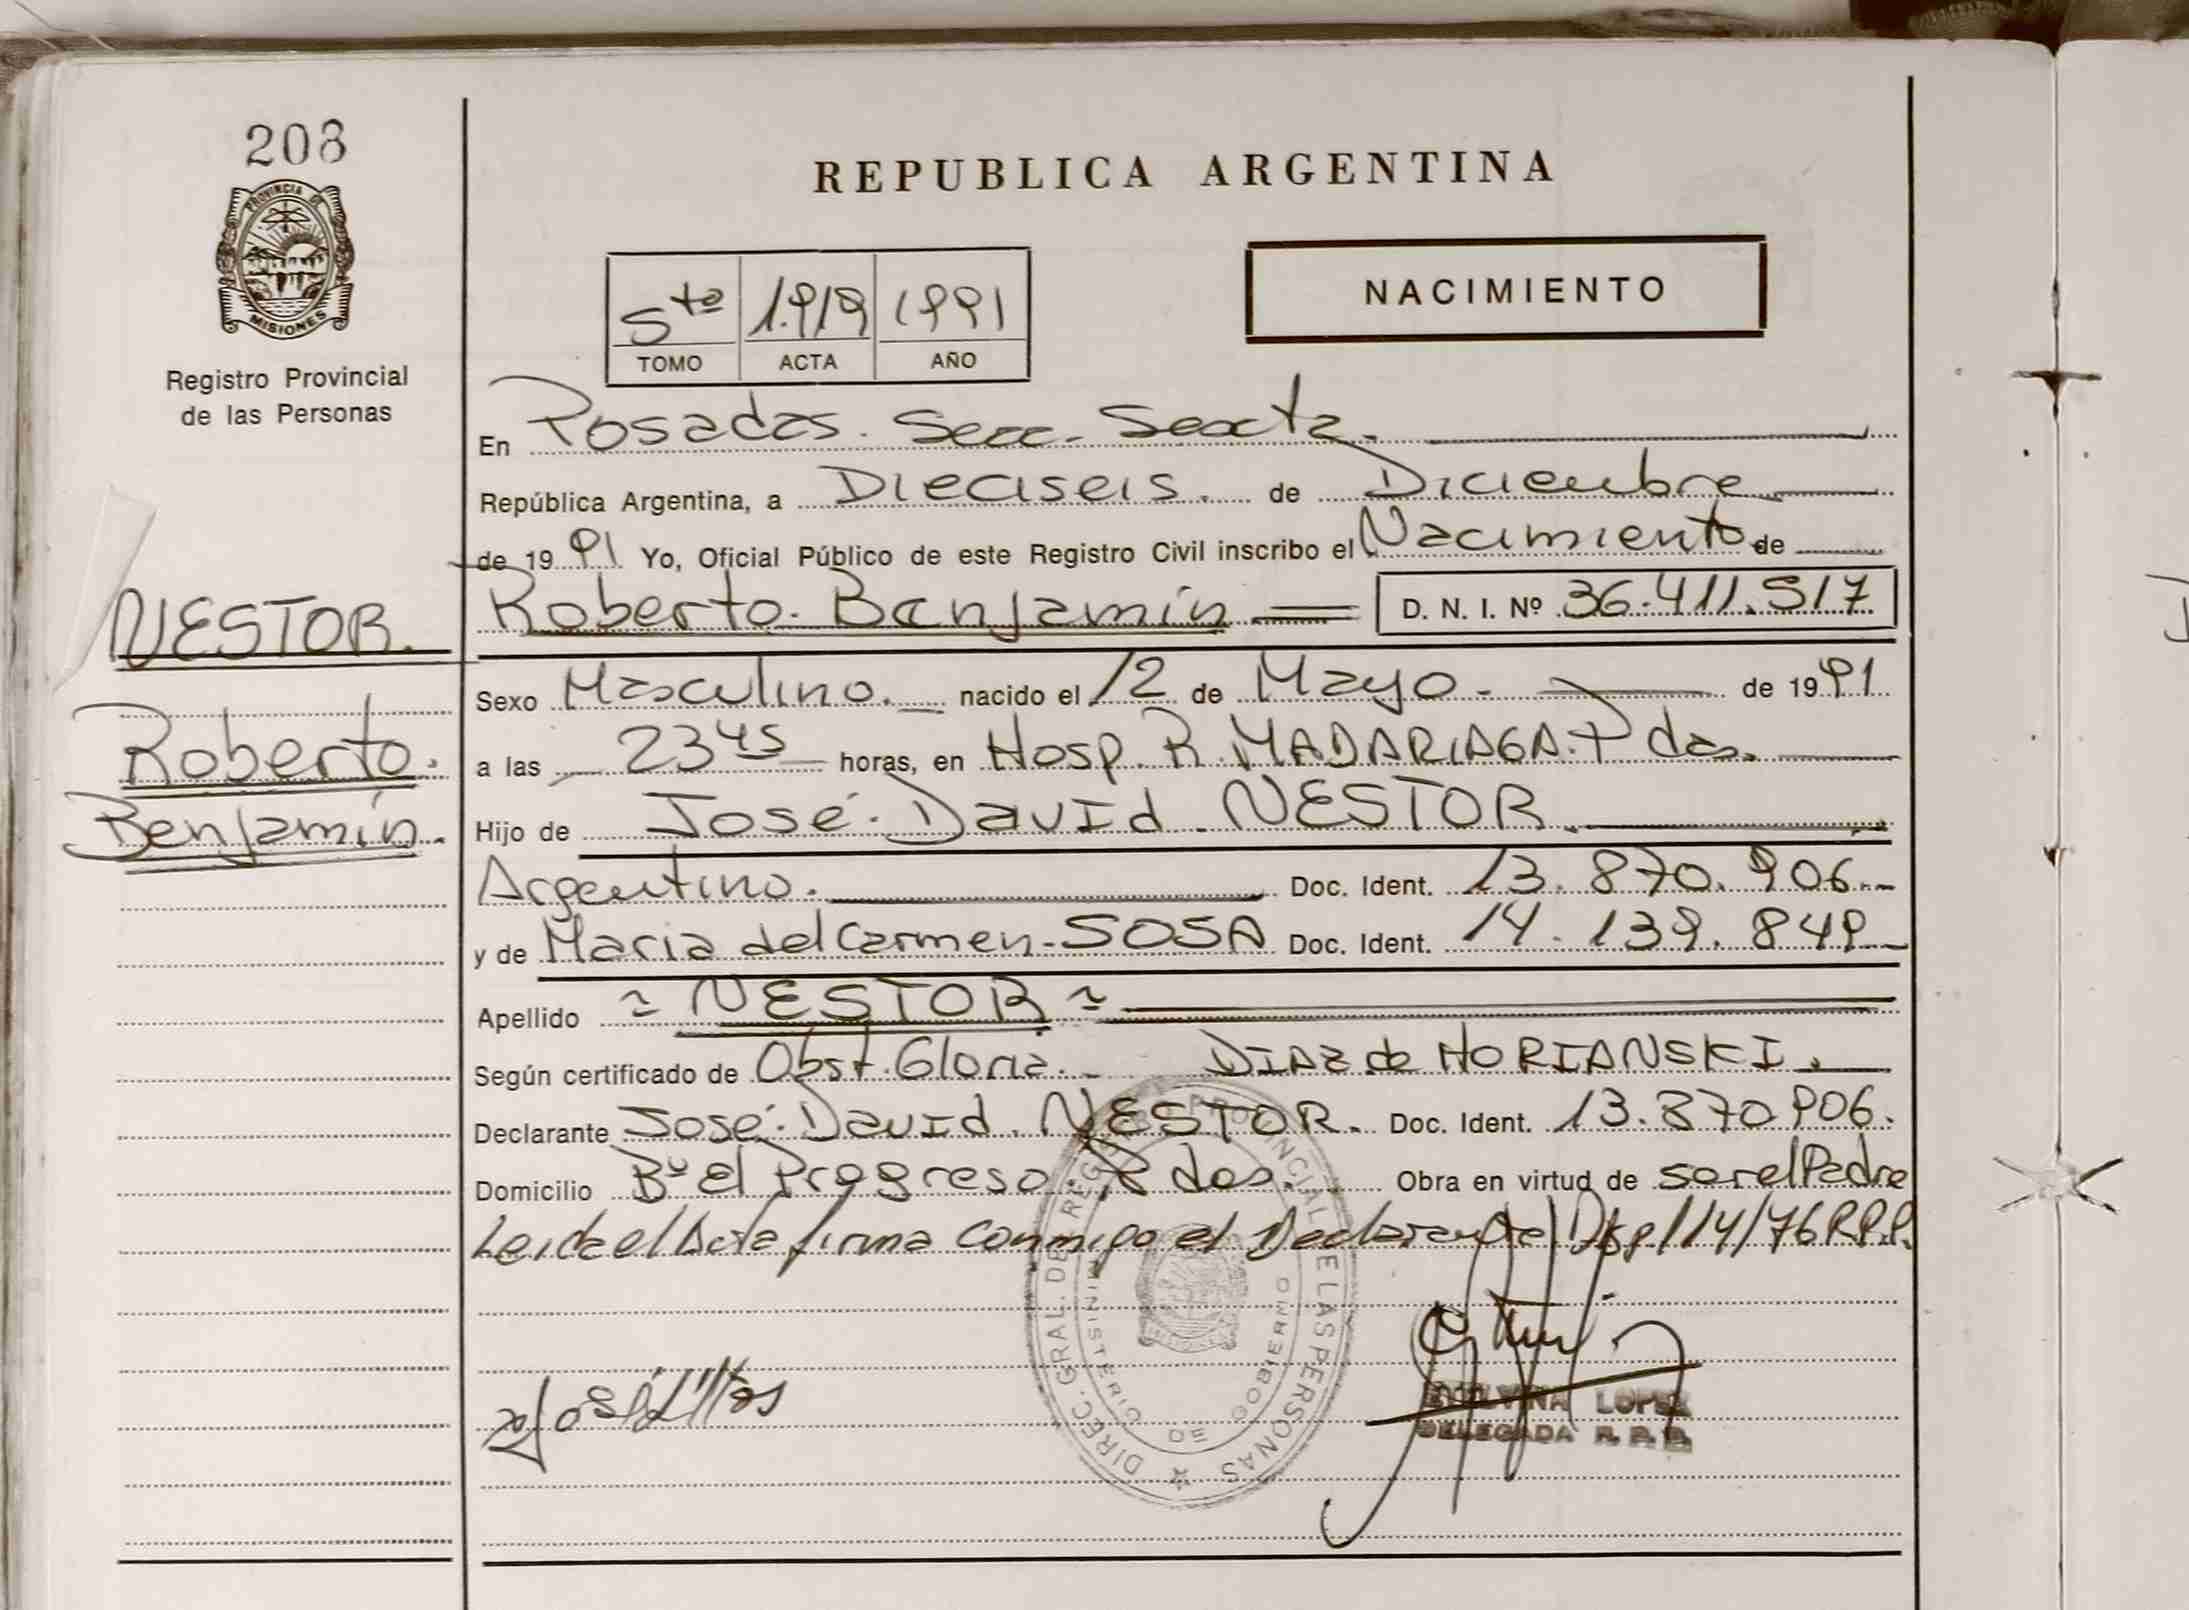 208
PROVINCIA DE
MISIONES
Registro Provincial
de las Personas
REPUBLICA ARGENTINA
5to 1.919 1991
TOMO ACTA AÑO
NACIMIENTO
En Posadas. Secc. Sexta.
República Argentina, a Dieciseis. de Diciembre
de 1991 Yo, Oficial Público de este Registro Civil inscribo el Nacimiento de
Roberto. Benjamín D. N. I. Nº 36.411.517
NESTOR.
Roberto.
Benjamín.
Sexo Masculino. nacido el 12 de Mayo. de 1991
a las 23 45 horas, en Hosp. R. MADARIAGA. Pdas.
Hijo de José. David. NESTOR.
Argentino. Doc. Ident. 13.870.906.
y de Maria del Carmen-SOSA Doc. Ident. 14.139.849
Apellido ~ NESTOR ~
Según certificado de Obst. Gloria. DIAZ de HORIANSKI.
Declarante José. David. NESTOR. Doc. Ident. 13.870906.
Domicilio Bº El Progreso. Pdas. Obra en virtud de ser el Padre
Leida el Acta firma conmigo el Declarante Disp 114/76 R.P.P.
DIREC. GRAL. DE REG. PROVINCIAL DE LAS PERSONAS
MINISTERIO DE GOBIERNO
LOPEZ
DELEGADA R. P. P.